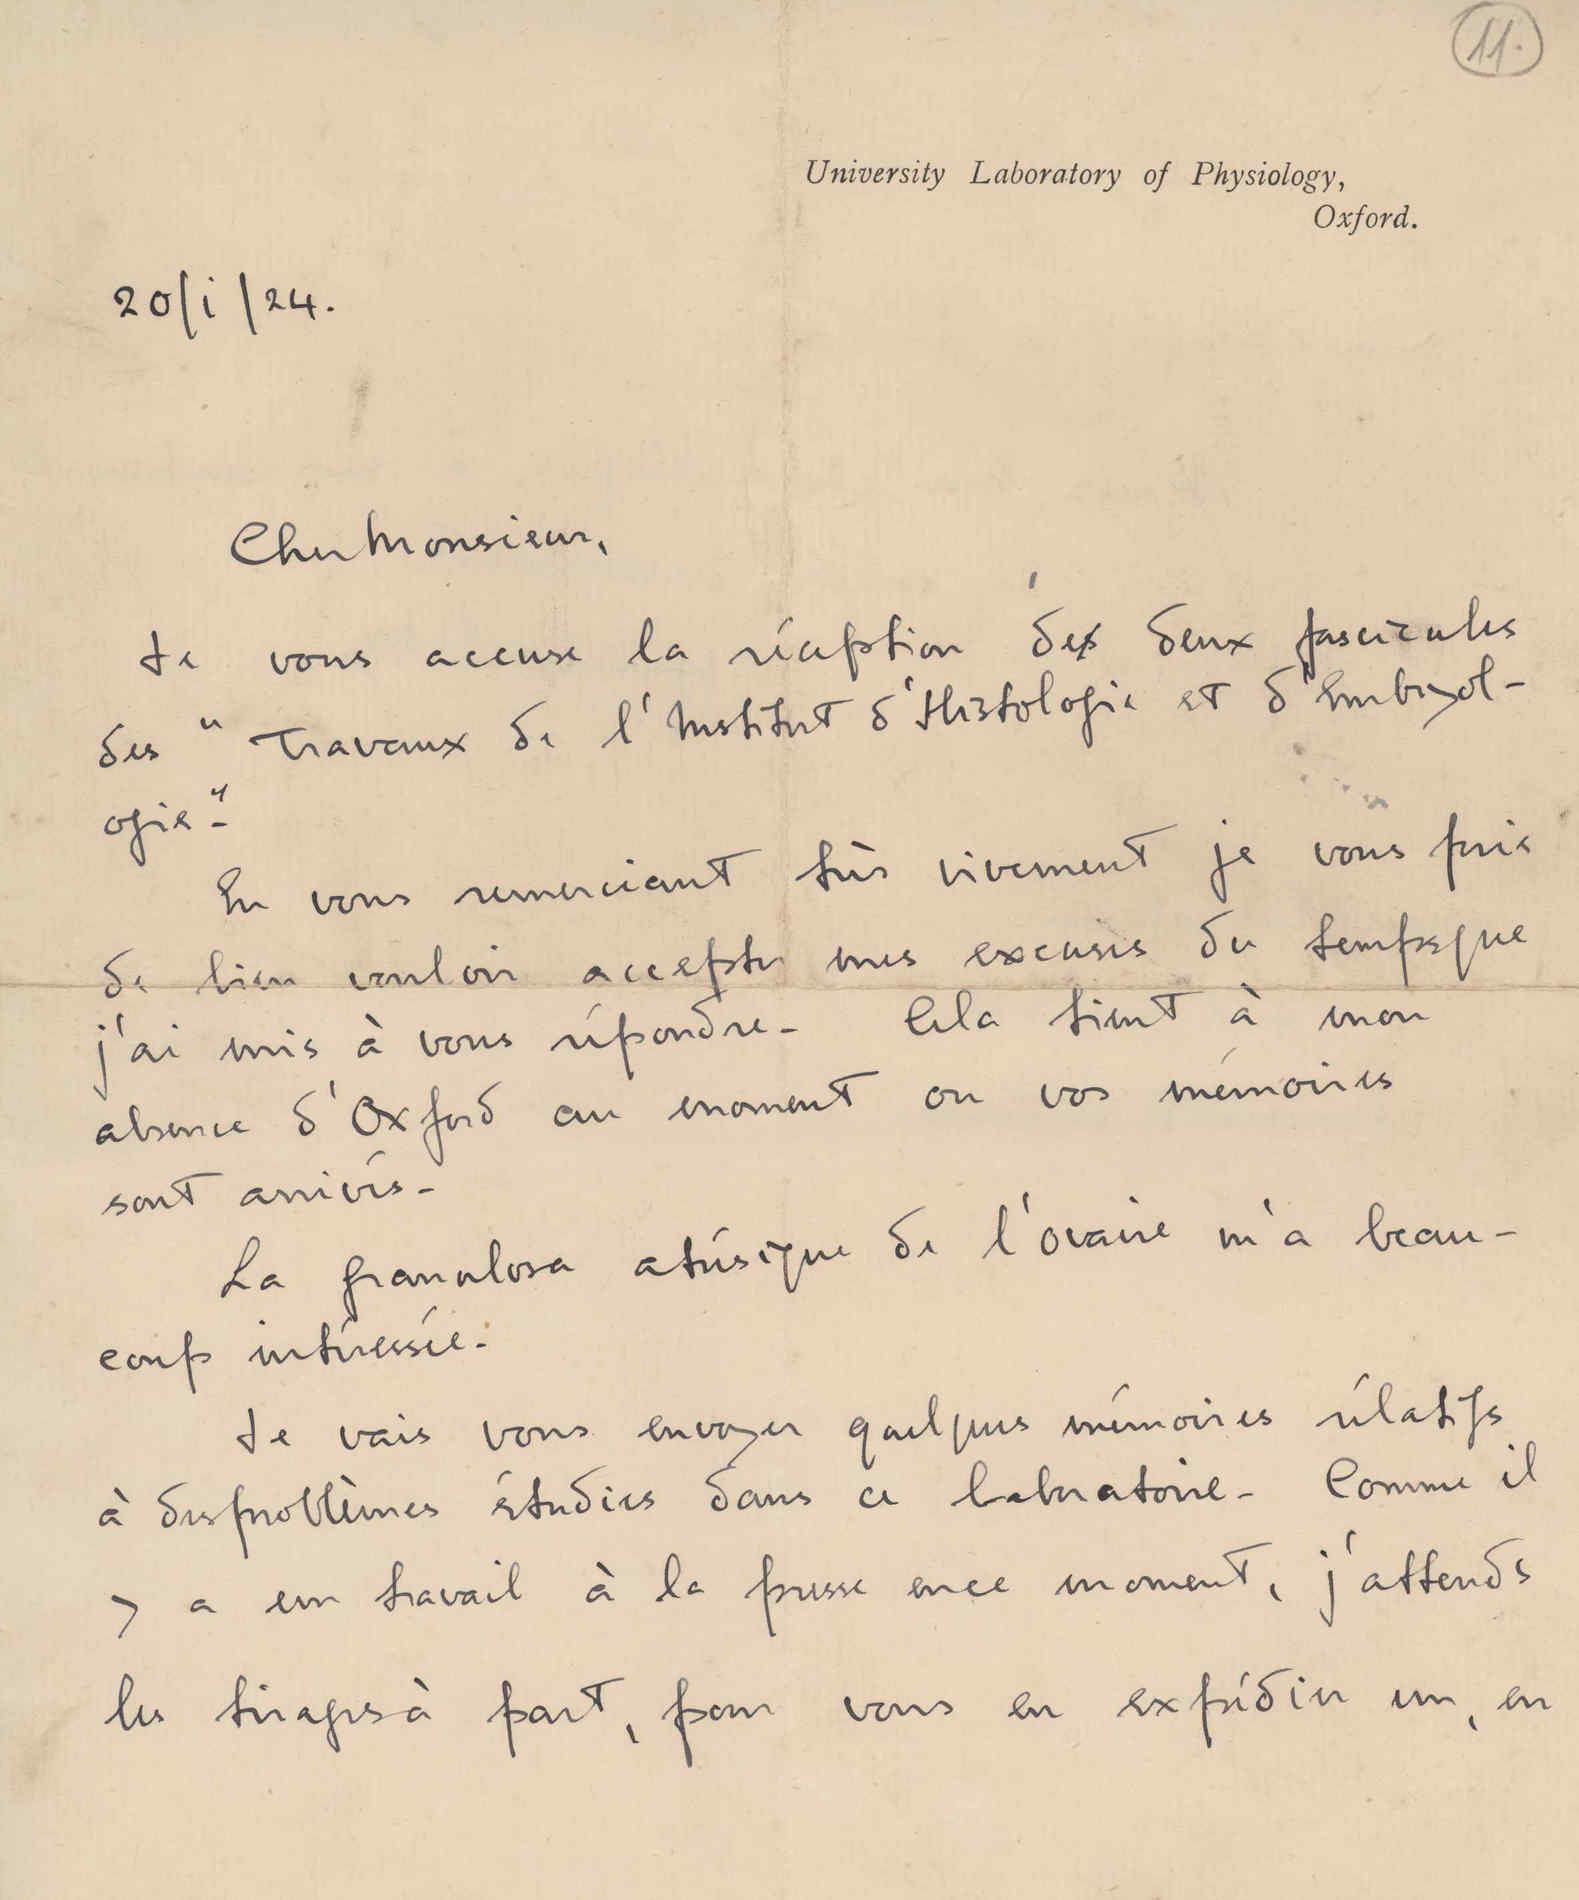 11.
University Laboratory of Physiology,
Oxford.
20/i/24.
Cher Monsieur,
Je vous accuse la réception de deux fascicules
des "Travaux de l'Institut d'Histologie et d'Embryol-
ogie"-
En vous remerciant très vivement je vous prie
de bien vouloir accepter mes excuses du temps que
j'ai mis à vous répondre- Cela tient à mon
absence d'Oxford au moment ou vos mémoires
sont arrivés-
La granulosa atrésique de l'ovaire m'a beau-
coup intéressée-
Je vais vous envoyer quelques mémoires rélatifs
à des problèmes étudies dans ce laboratoire- Comme il
y a un travail à la presse en ce moment, j'attends
les tirages à part, pour vous en expédier un, en